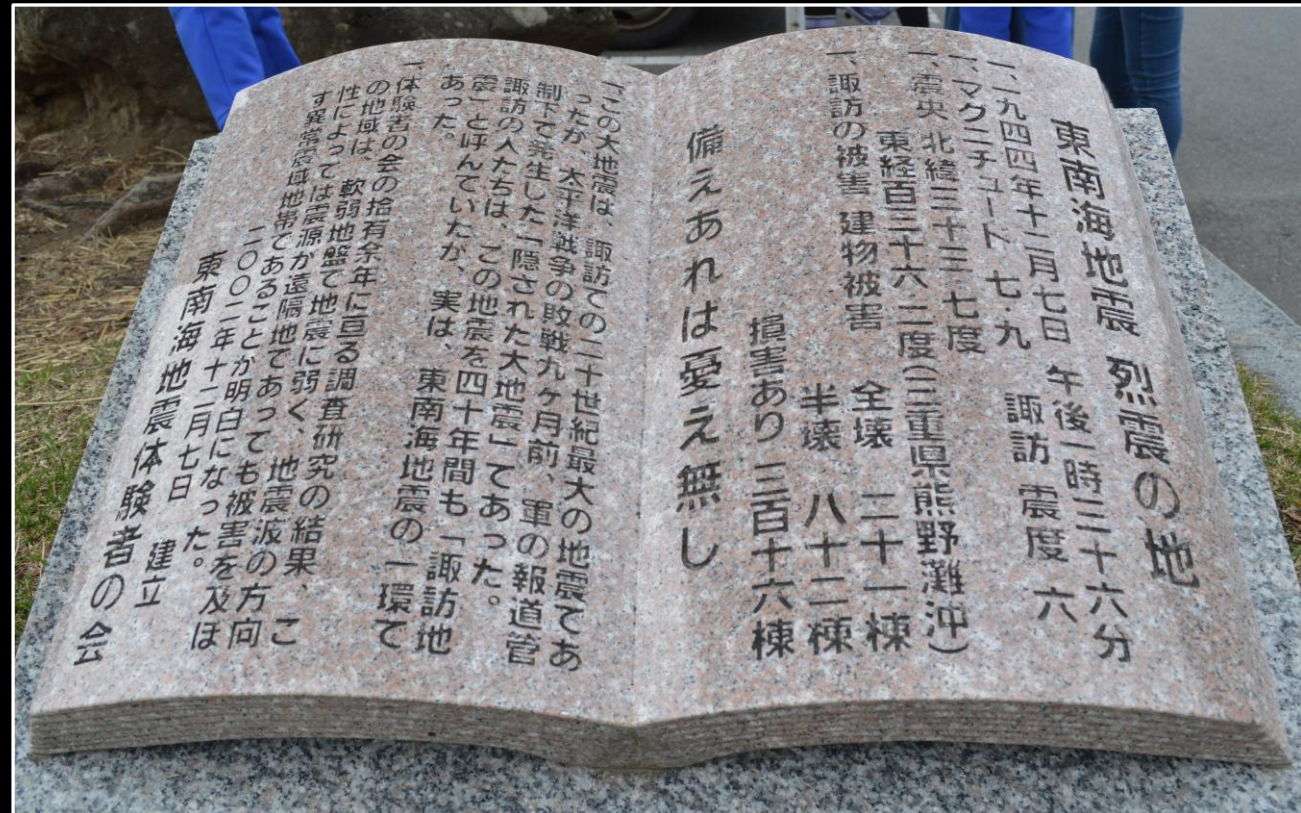 東南海地震 烈震の地
一、一九四四年十二月七日 午後一時三十六分
一、マクニチュード 七・九 諏訪 震度 六
一、震央 北緯三十三・七度
東経百三十六・二度(三重県熊野灘沖)
一、諏訪の被害 建物被害 全壊 二十一棟
半壊 八十二棟
損害あり 三百十六棟
備えあれは憂え無し
一、この大地震は、諏訪ての二十世紀最大の地震てあ
ったが、太平洋戦争の敗戦九ヶ月前、軍の報道管
制下て発生した「隠された大地震」てあった。
諏訪の人たちは、この地震を四十年間も「諏訪地
震」と呼んていたが、実は、東南海地震の一環て
あった。
一、体験者の会の拾有余年に亘る調査研究の結果、こ
の地域は、軟弱地盤で地震に弱く、地震波の方向
性によっては震源が遠隔地であっても被害を及ほ
す異常震域地帯であることが明白になった。
二〇〇二年十二月七日 建立
東南海地震体験者の会